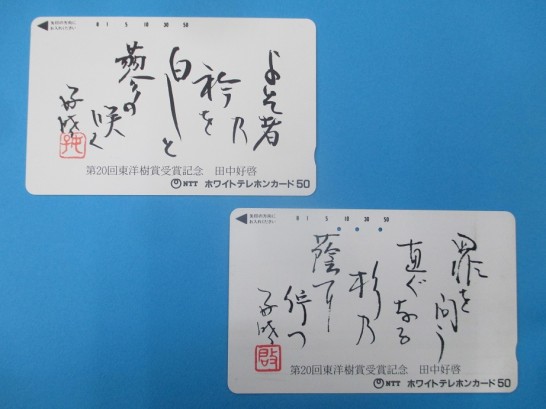 矢印の方向に
お入れください
0 1 5 10 30 50
よそ者
乃
衿を
白しと
の
咲く
好啓
第20回東洋樹賞受賞記念 田中好啓
NTT ホワイトテレホンカード50
矢印の方向に
お入れください
0 1 5 10 30 50
罪を
問う
直ぐなる
杉乃
蔭に
佇つ
好啓
啓
第20回東洋樹賞受賞記念 田中好啓
NTT ホワイトテレホンカード50